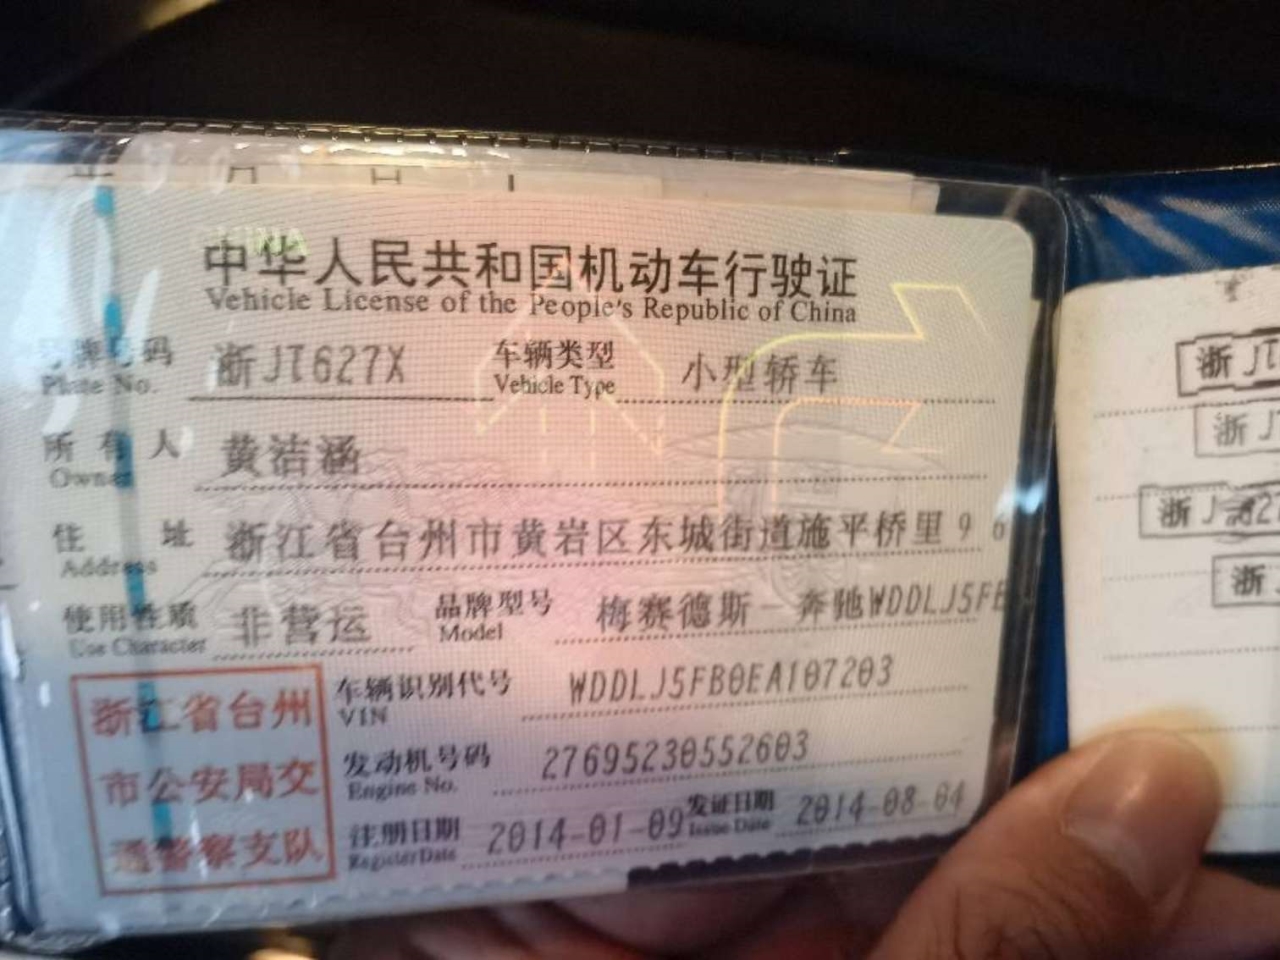 中华人民共和国机动车行驶证
Vehicle License of the People's Republic of China
号牌号码 浙JT627X 车辆类型 小型轿车
Plate No. Vehicle Type
所有人 黄洁涵
Owner
住址 浙江省台州市黄岩区东城街道施平桥里96
Address
使用性质 非营运 品牌型号 梅赛德斯－奔驰WDDLJ5FB
Use Character Model
车辆识别代号 WDDLJ5FB0EA107203
VIN
发动机号码 27695230552603
Engine No.
注册日期 2014-01-09 发证日期 2014-08-04
Register Date Issue Date
浙江省台州
市公安局交
通警察支队
浙J
浙J
浙J
浙